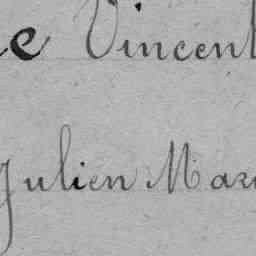 e Vincent
Julien Mar